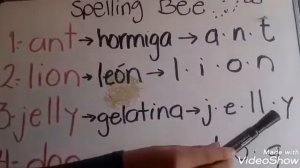 Spelling Bee...
1. ant→hormiga→a.n.t
2. lion→león→l.i.o.n
3. jelly→gelatina→j.e.ll.y
4. dog
Made with
VideoShow